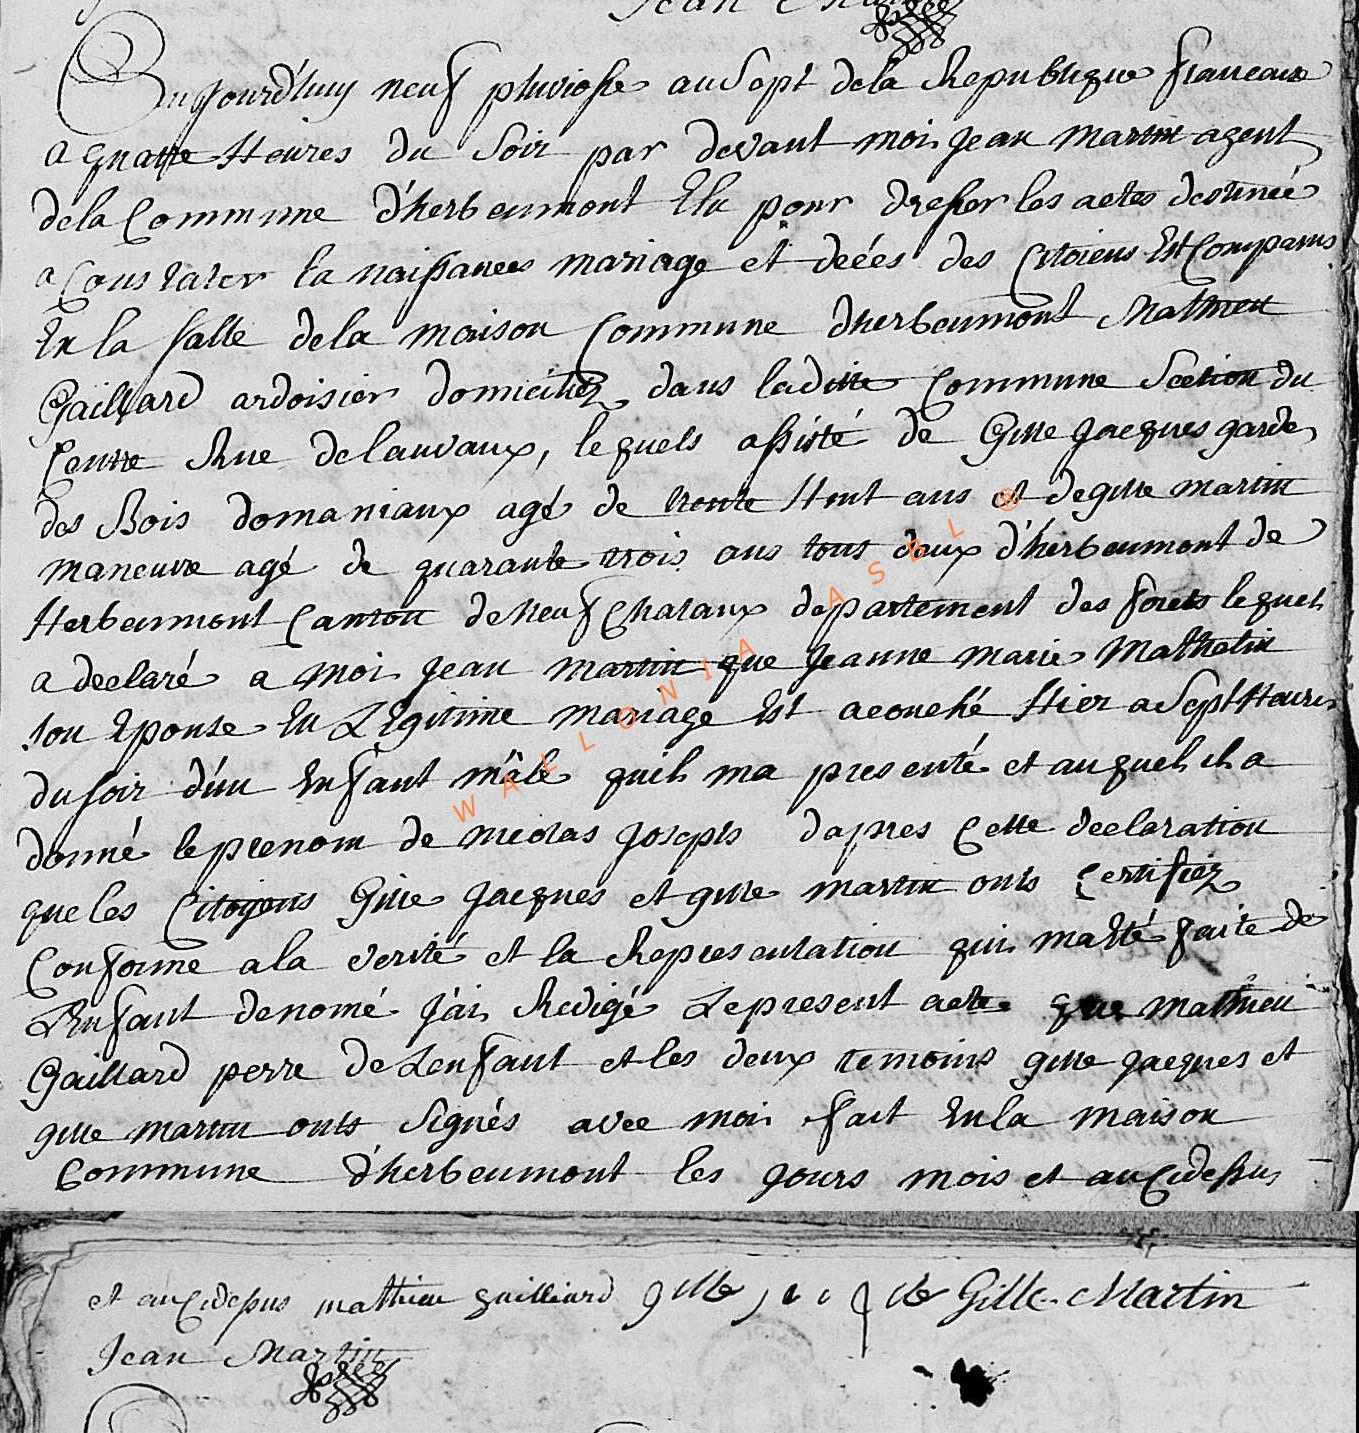 Jean
Aujourd'huy neuf pluviosse an Sept dela Republique francaise
a quatre Heures du Soir par devant moi Jean Martin agent
dela Commune d'herbeumont Elu pour dresser les actes destinée
a Constater la naissances mariage et décés des Citoiens Est Comparus
En la salle dela maison Commune d'herbeumont Mathieu
Gaillard ardoisier domiciliez dans laditte Commune Section du
Centre Rue delauvaux, lequels assisté de Gille Jacques garde
des Bois domaniaux agé de trente Huit ans et de gille martin
maneuvre agé de quarante trois ans tous deux d'herbeumont de
Herbeumont Canton de neufChataux departement des forets lequel
a declaré a moi Jean martin que Jeanne marie Mathelin
son Epouse En Légitime mariage Est acouché Hier a Sept Heures
du soir d'un Enfant mâle quil ma presenté et auquel il a
donné le prenom de nicolas Joseph dapres Cette declaration
que les Citoyens Gille Jacques et gille martin onts Certifiez
Conforme ala verité et la Representation qui ma Eté faite de
L'Enfant denomé J'ai Redigé Le present acte que mathieu
Gaillard perre de Lenfant et les deux temoins gille Jacques et
gille martin onts Signés avec moi fait En la maison
Commune d'herbeumont les Jours mois et an Cidessus
et an Cidessus mathieu gailliard gille Gille Martin
Jean Martin
WALLONIA ASBL ®